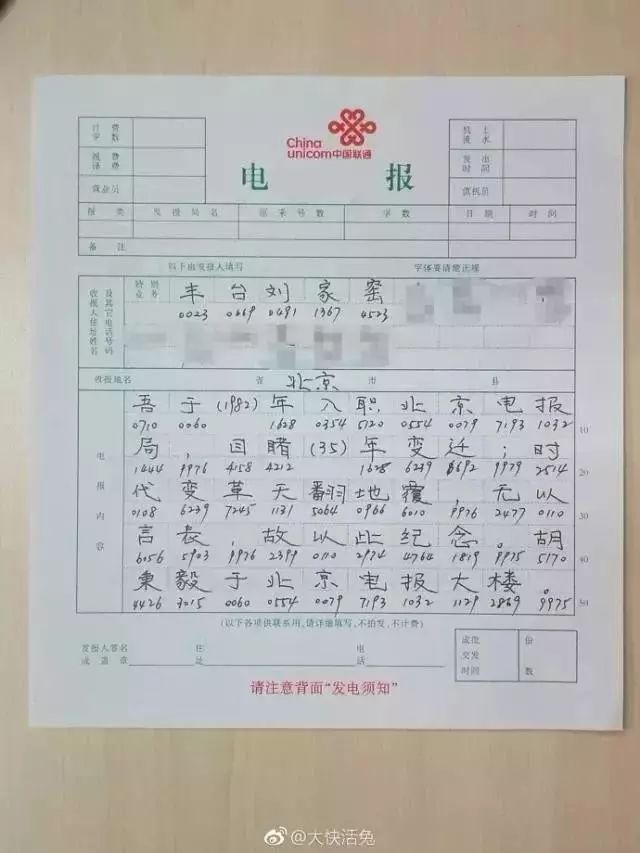 China
unicom中国联通
电 报
计费字数
机上流水
报费译费
发出时间
营业员
值机员
报类 发报局名 原来号数 字数 日期 时间
备注
以下由发报人填写 字体要请楚正规
收报人住址姓名及其它电话号码
特别业务 丰 台 刘 家 窑
0023 0669 0491 1367 4523
收报地名 省 北京 市 县
电报内容
吾 于 (1982) 年 入 职 北 京 电 报
0710 0060 1628 0354 5120 0554 0079 7193 1032 10
局 , 目 睹 (35) 年 变 迁 ; 时
1444 9976 4158 4212 1628 6239 6692 9979 2514 20
代 变 革 天 翻 地 覆 , 无 以
0108 6239 7245 1131 5064 0966 6010 9976 2477 0110 30
言 表 , 故 以 此 纪 念 。 胡
6056 5903 9976 2399 0110 2974 4764 1819 9975 5170 40
秉 毅 于 北 京 电 报 大 楼 。
4426 3015 0060 0554 0079 7193 1032 1129 2869 9975 50
(以下各项供联系用,请详细填写,不拍发,不计费)
发报人签名或盖章 住址 电话
成批交发时间 份数
请注意背面“发电须知”
@大快活兔